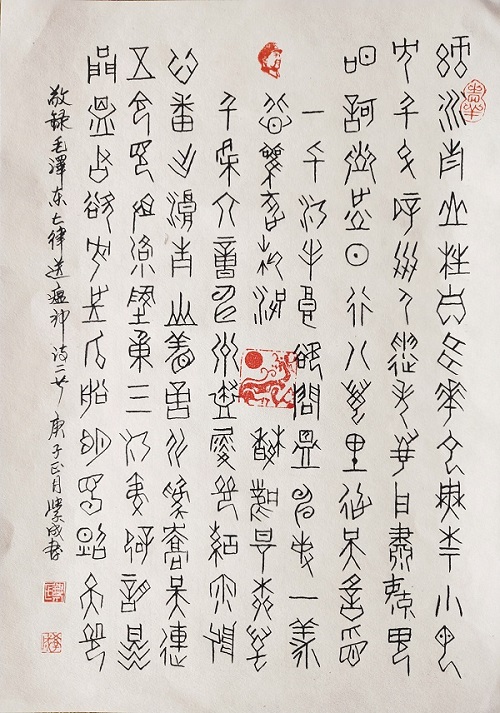 綠水青山枉自多華佗無奈小虫
何千村薜荔人遺矢萬户蕭疏鬼
唱歌坐地日行八萬里巡天遙看
一千河牛郎欲問瘟神事一樣
悲歡逐逝波 春風楊柳萬
千條六億神州盡舜堯紅雨隨
心翻作浪青山着意化為橋天連
五嶺銀鋤落地動三河鐵臂搖借
問瘟君欲何往紙船明燭照天燒
敬錄毛澤東七律送瘟神詩二首 庚子正月 成書